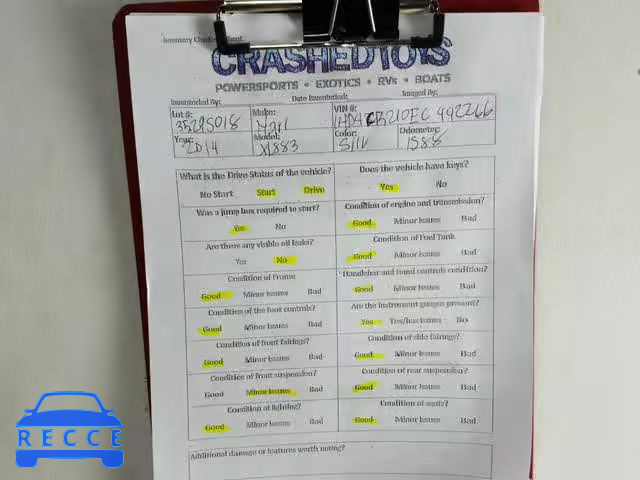 CRASHEDTOYS
POWERSPORTS • EXOTICS • RVs • BOATS
Inventoried By: Date Inventoried: Imaged By:
Lot #: Make: VIN #:
35295018 Harl 1HD4CR210EC442266
Year: Model: Color: Odometer:
2014 Xl883 Silv 1588
What is the Drive Status of the vehicle? Does the vehicle have keys?
No Start Start Drive Yes No
Was a jump box required to start? Condition of engine and transmission?
Yes No Good Minor Issues Bad
Are there any visible oil leaks? Condition of Fuel Tank
Yes No Good Minor Issues Bad
Condition of Frame Handlebar and hand controls condition?
Good Minor Issues Bad Good Minor Issues Bad
Condition of the foot controls? Are the instrument gauges present?
Good Minor Issues Bad Yes Yes/has issues No
Condition of front fairings? Condition of side fairings?
Good Minor Issues Bad Good Minor Issues Bad
Condition of front suspension? Condition of rear suspension?
Good Minor Issues Bad Good Minor Issues Bad
Condition of lighting? Condition of seats?
Good Minor Issues Bad Good Minor Issues Bad
Additional damage or features worth noting?
RECCE